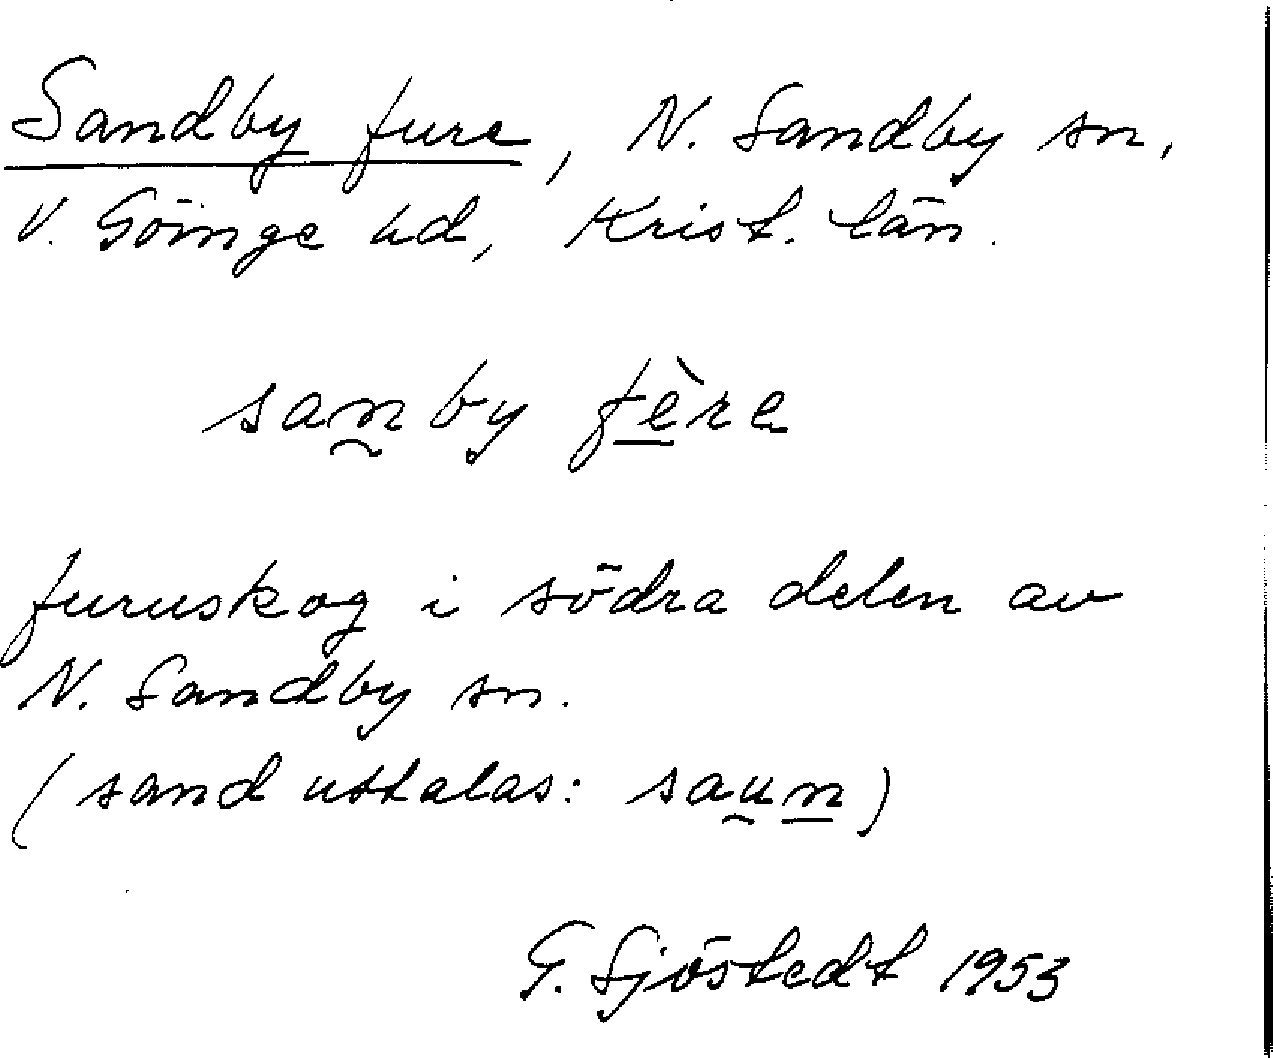 Sandby fure, N. Sandby sn,
V. Göinge hd, Krist. län.
sanby fère
furuskog i södra delen av
N. Sandby sn.
(sand uttalas: saun)
G. Sjöstedt 1953